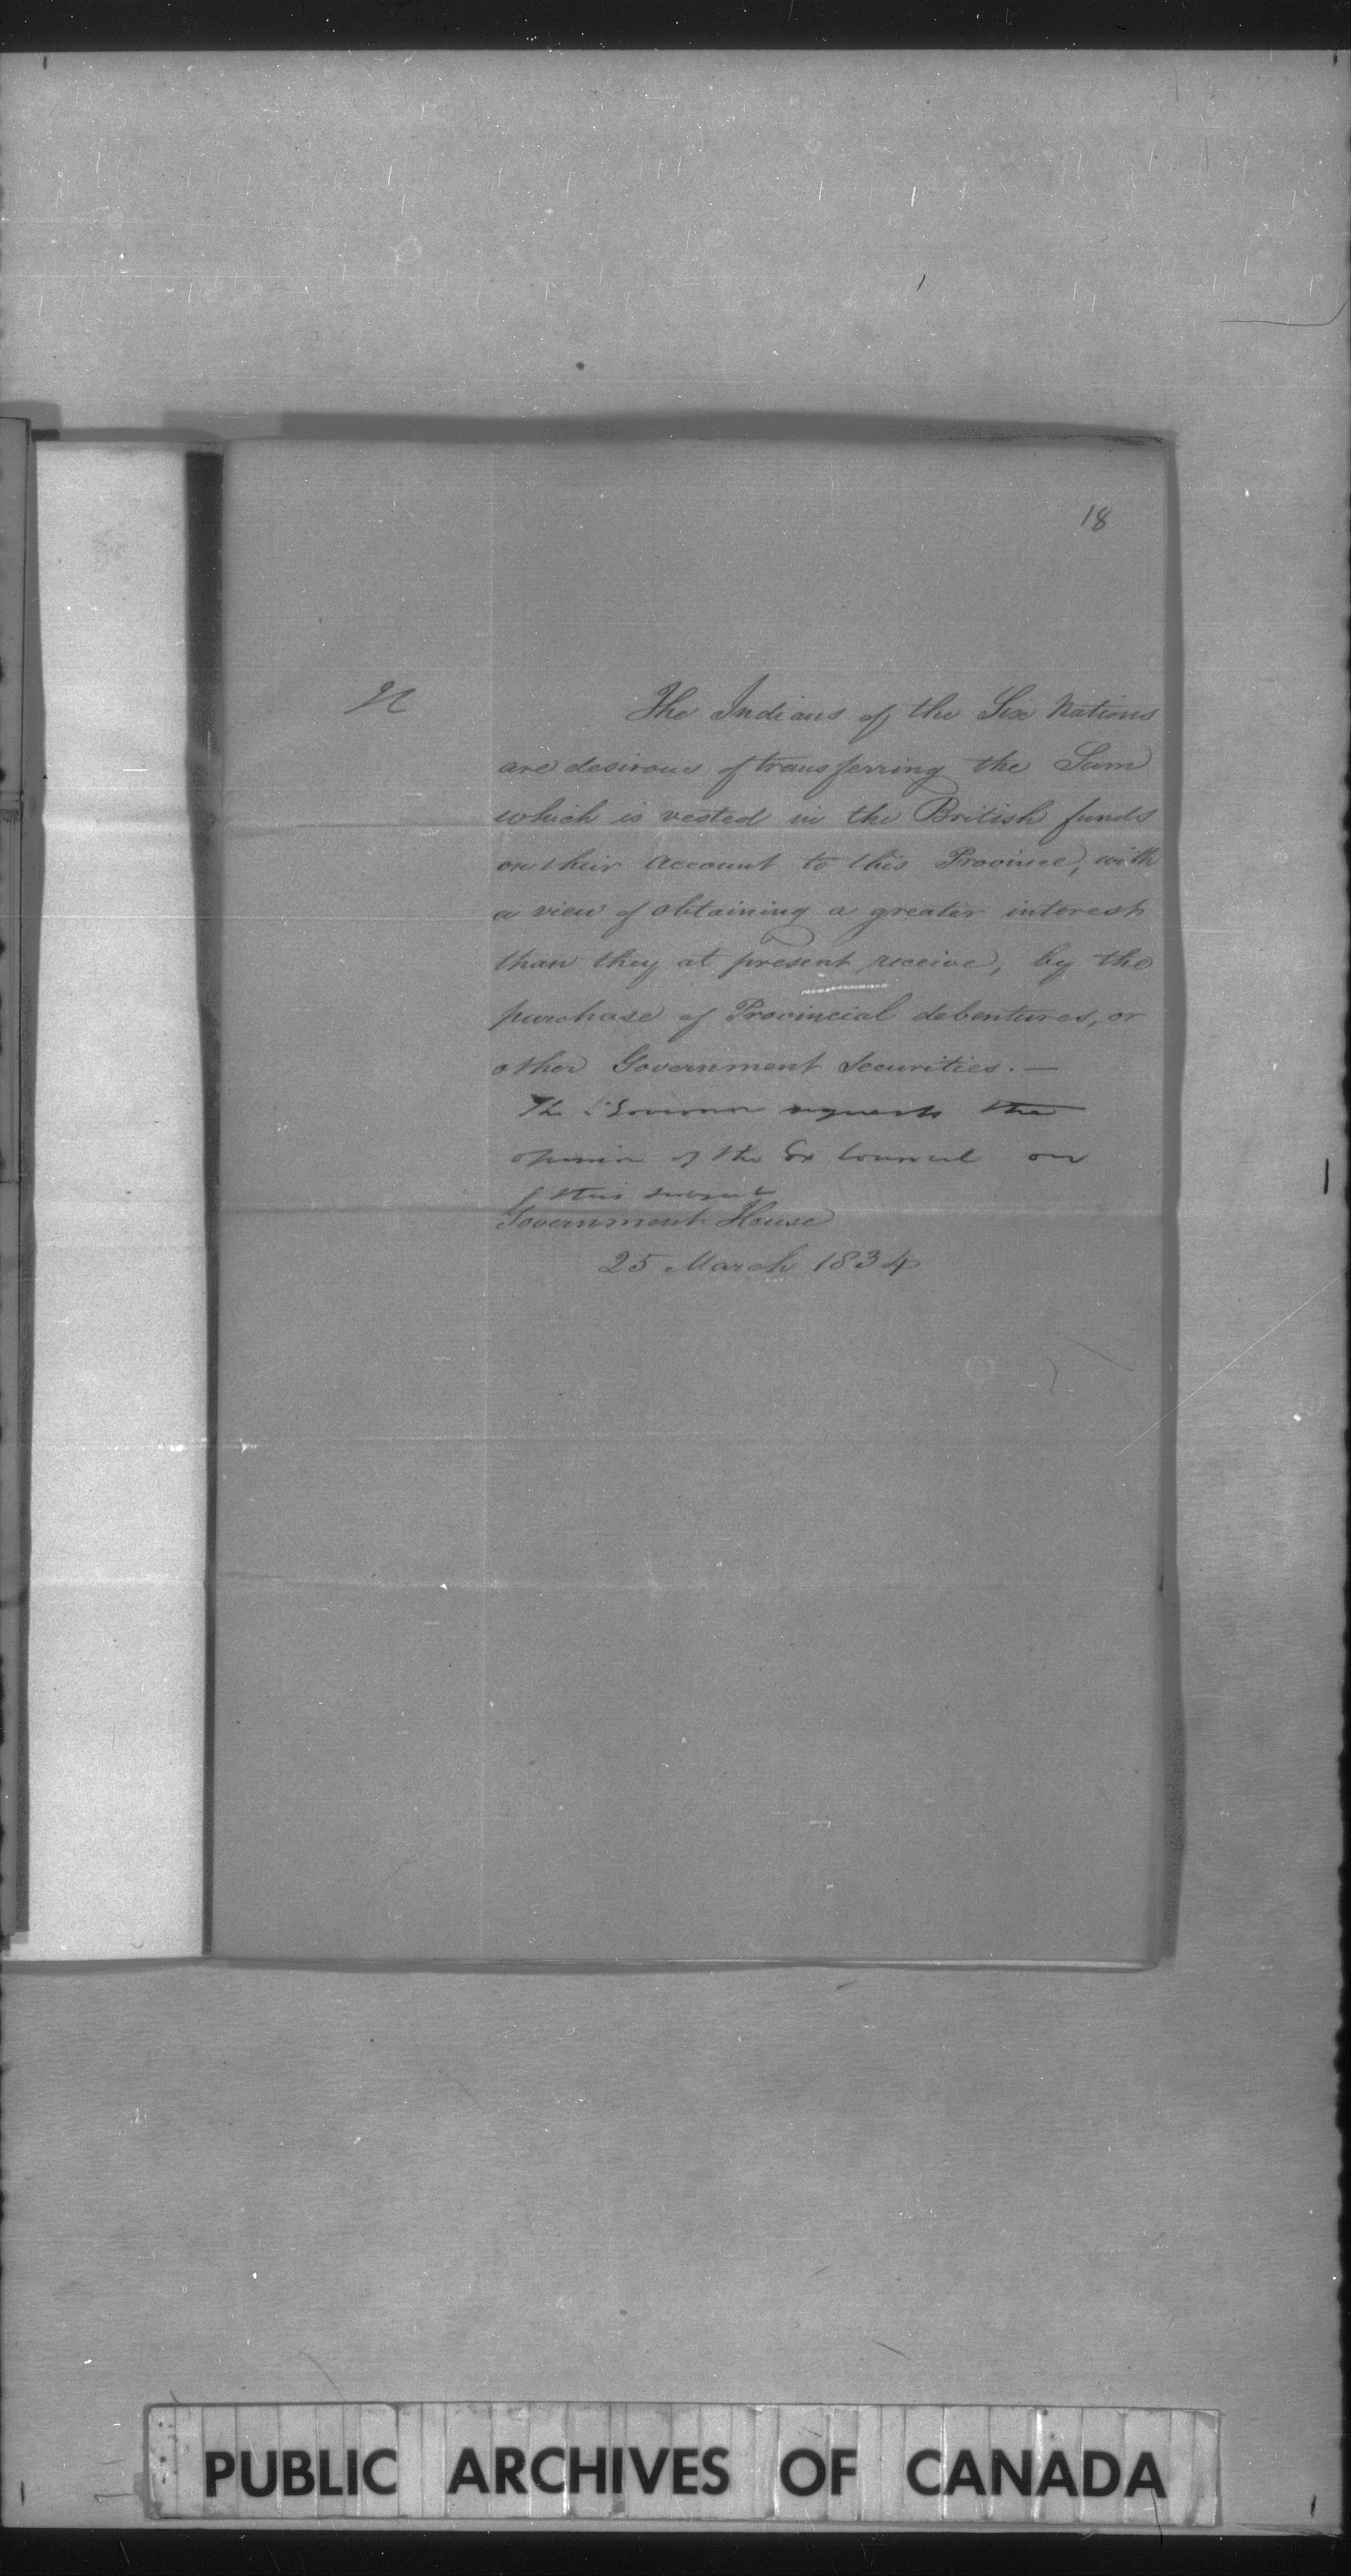 18
The Indians of the Six Nations
are desirous of transferring the Sum
which is vested in the British funds
on their account to this Province, with
a view of obtaining a greater interest
than they at present receive, by the
purchase of Provincial debentures, or
other Government Securities. —
The Governor requests the
opinion of the Ex Council on
this subject
Government House
25 March 1834
PUBLIC ARCHIVES OF CANADA